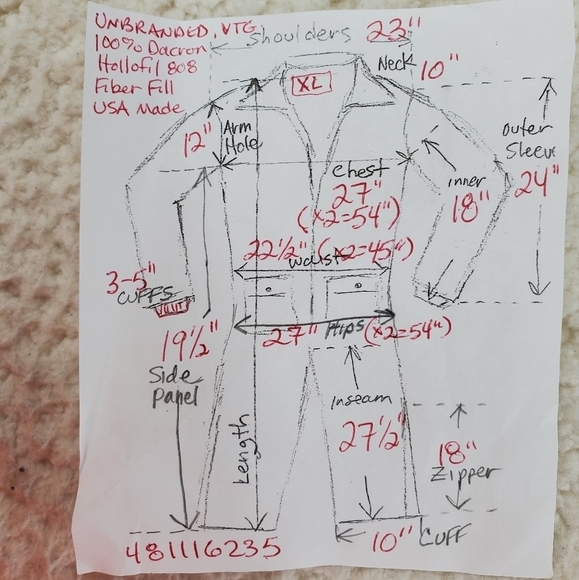 UNBRANDED, VTG
100% Dacron
Hollofil 808
Fiber Fill
USA Made
Shoulders 23"
XL
Neck 10"
12"
Arm
Hole
outer
Sleeve
24"
inner
18"
Chest
27"
(x2=54")
22½" (x2=45")
waist
3-5"
CUFFS
27" Hips (x2=54")
19½"
Side
Panel
Length
inseam
27½"
18"
Zipper
10" CUFF
481116235